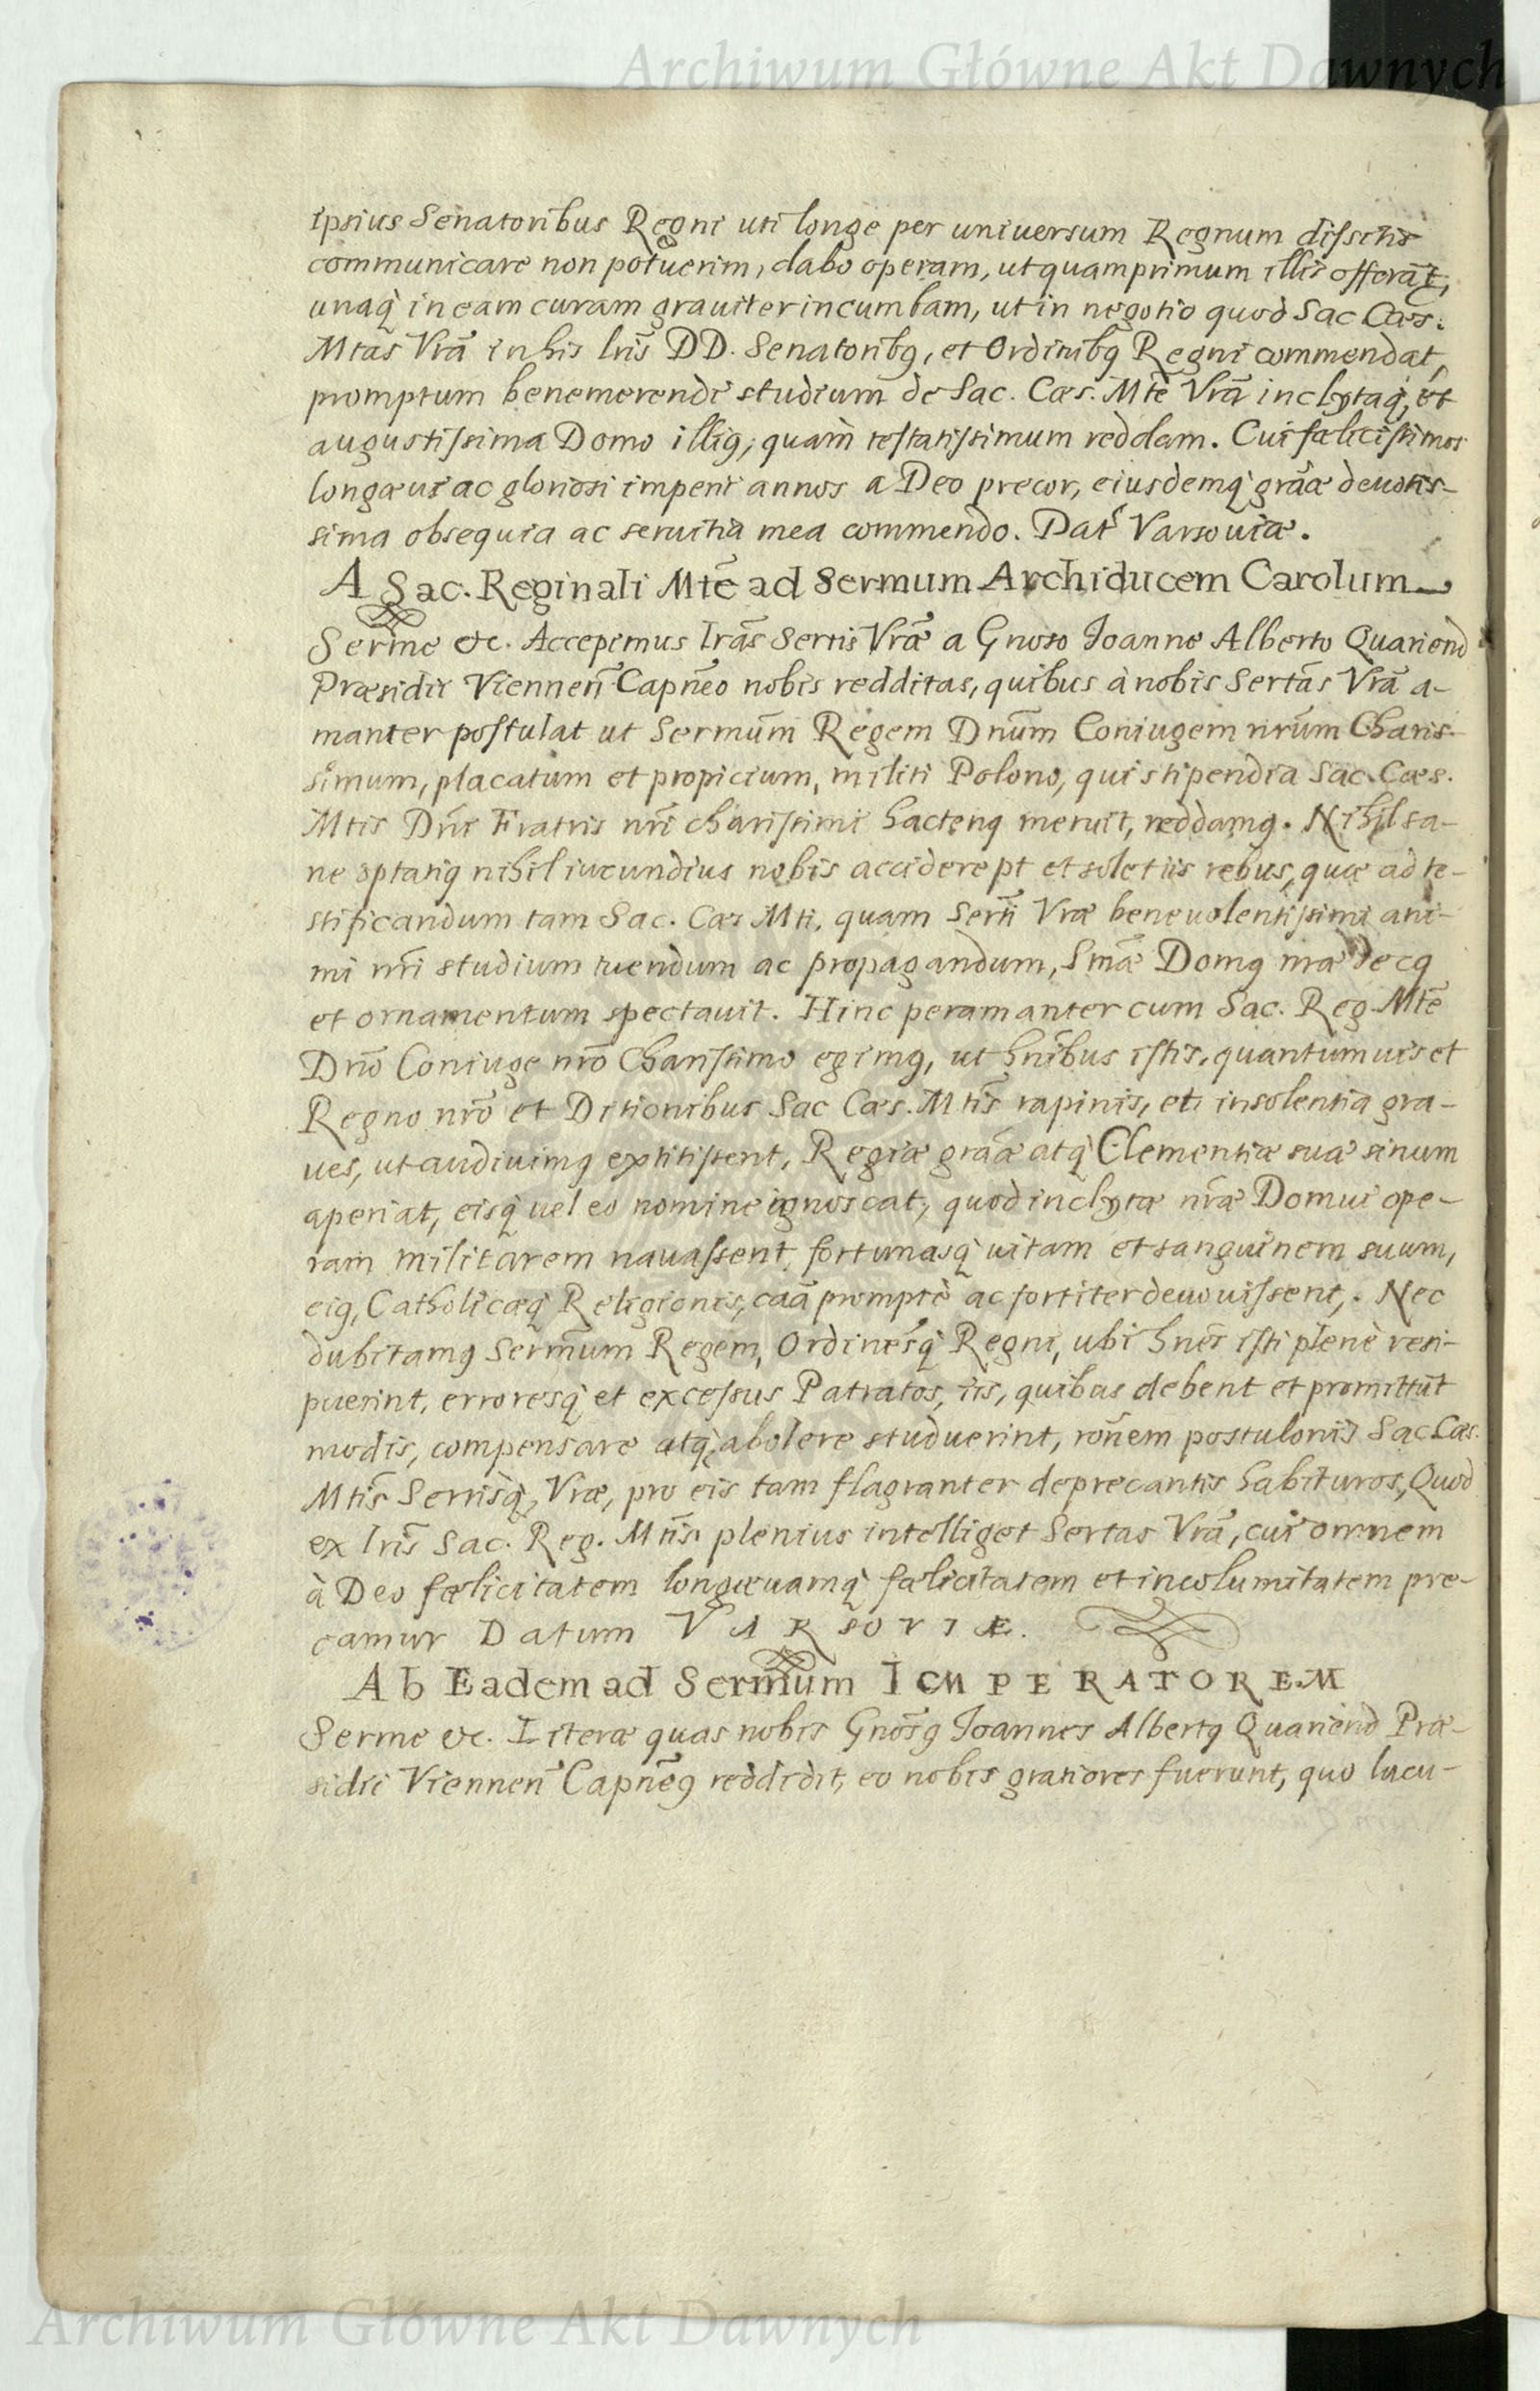 Archiwum Główne Akt Dawnych
ipsius Senatoribus Regni uti longe per universum Regnum dissitis
communicare non potuerim, dabo operam, ut quamprimum illis offerãt,
unaq̀ in eam curam grauiter incumbam, ut in negotio quod Sac Cæs.
Mtãs Vrã in his lrĩs DD. Senatoribꝰ, et Ordinibꝰ Regni commendat,
promptum benemerendi studium de Sac. Cæs. Mtẽ Vrã inclytaq̀, et
augustissima Domo illiꝰ, quam testatissimum reddam. Cui fœlicissimos
longæui ac gloriosi imperii annos a Deo precor, eiusdemq̀ grãæ deuotis-
sima obsequia ac seruitia mea commendo. Dat Varsouiæ.
A Sac. Reginali Mtẽ ad Sermum Archiducem Carolum
Serme &c. Accepimus lrãs Sertis Vræ a Gnoso Joanne Alberto Quariend
Præsidii Viennen̄ Capnẽo nobis redditas, quibus à nobis Sertãs Vrã a-
manter postulat ut Sermũm Regem Dnũm Coniugem nrũm Charis-
simum, placatum et propicium, militi Polono, qui stipendia Sac. Cæs.
Mtis Dnĩ Fratris nrĩ charissimi hactenꝰ meruit, reddamꝰ. Nihil sa-
ne optatiꝰ nihil iucundius nobis accidere pt et solet iis rebus, quæ ad te-
stificandum tam Sac. Cæs Mti, quam Sertĩ Vræ beneuolentissimi ani-
mi nrĩ studium tuendum ac propagandum, Smæ̃ Domꝰ nræ decꝰ
et ornamentum spectauit. Hinc peramanter cum Sac. Reg. Mtẽ
Dnõ Coniuge nrõ Charissimo egimꝰ, ut hnĩbus istis, quantumuis et
Regno nrõ et Ditionibus Sac Cæs. Mtis̃ rapinis, et insolentia gra-
ues, ut audiuimꝰ extitissent, Regiæ grãæ atq̀ Clementiæ suæ sinum
aperiat, eisq̀ uel eo nomine ignoscat, quod inclytæ nræ̃ Domui ope-
ram militarem nauassent, fortunasq̀ uitam et sanguinem suum,
eiꝰ, Catholicæq̀ Religionis, caã promptè ac fortiter deuouissent. Nec
dubitamꝰ Sermũm Regem, Ordinesq̀ Regni, ubi hnẽs isti plenè resi-
puerint, erroresq̀ et excessus Patratos, iis, quibus debent et promittũt
modis, compensare atq̀ abolere studuerint, ronẽm postulonis Sac Cæs.
Mtis̃ Sertisq̀ Vræ, pro eis tam flagranter deprecantis habituros, Quod
ex lrĩs Sac. Reg. Mtis̃ plenius intelliget Sertas Vrã, cui omnem
à Deo fœlicitatem longæuamq̀ fœlicitatem et incolumitatem pre-
camur Datum VARSOVIÆ.
Ab Eadem ad Sermũm IMPERATOREM
Serme &c. Literæ quas nobis Gnosꝰ Joannes Albertꝰ Quariend Præ-
sidii Viennen̄ Capnẽꝰ reddidit, eo nobis gratiores fuerunt, quo lucu-
Archiwum Główne Akt Dawnych